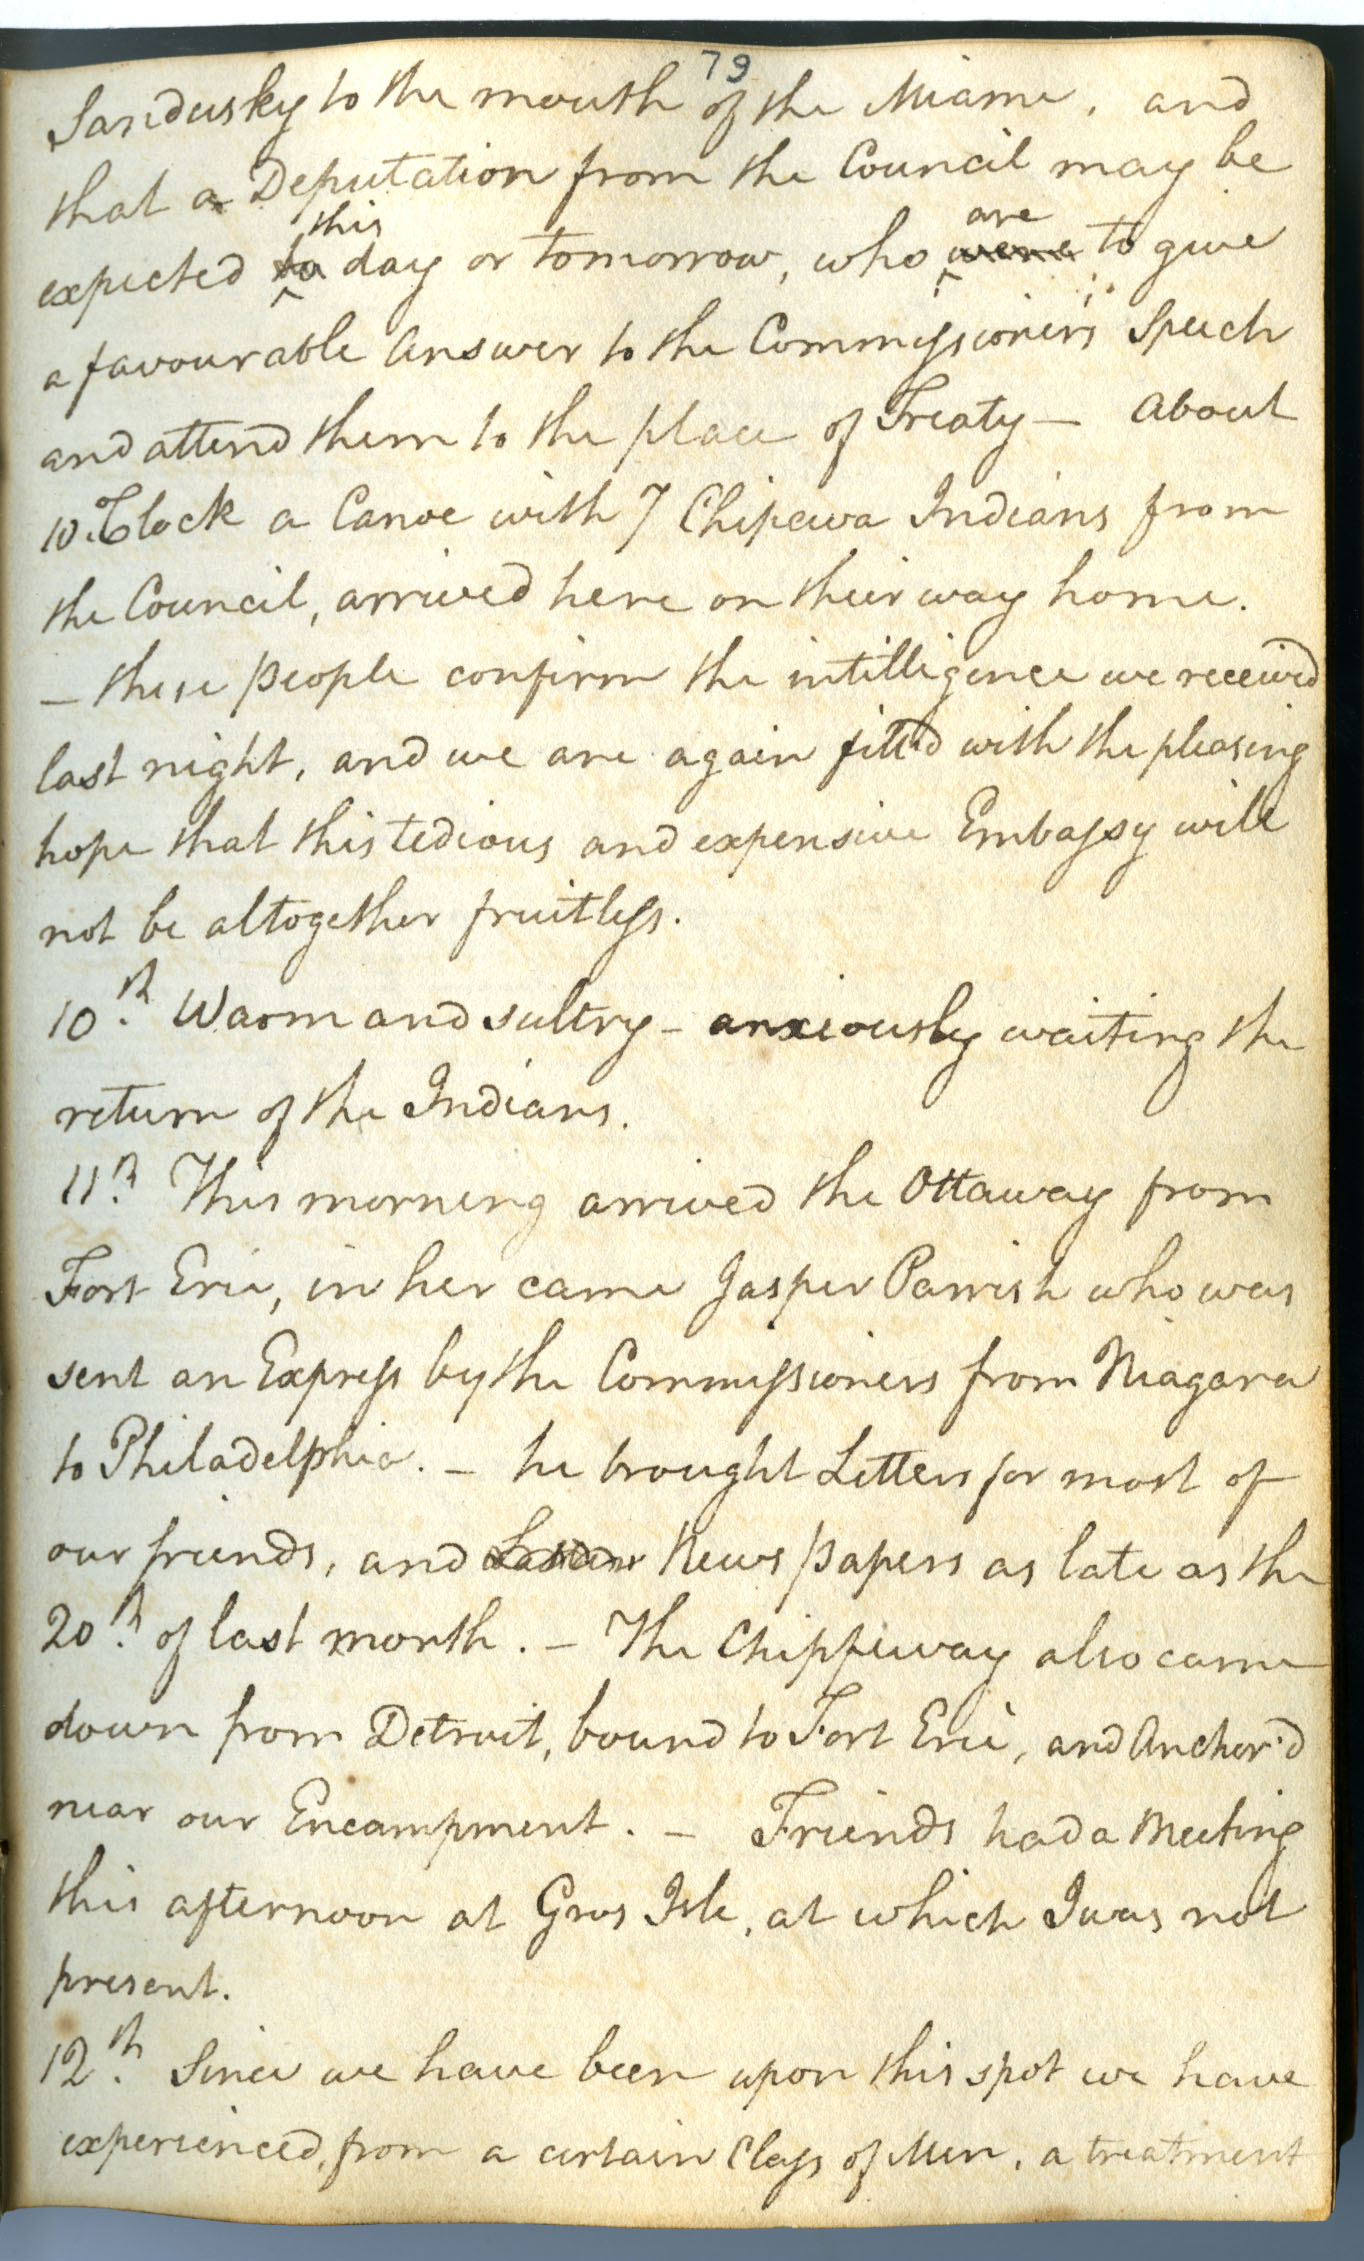 79
Sandusky to the mouth of the Miame, and
that a Deputation from the Council may be
this are
expected to day or tomorrow, who were to give
a favourable Answer to the Commissioners Speech
and attend them to the place of Treaty — About
10 oClock a Canoe with 7 Chipewa Indians from
the Council, arrived here on their way home.
— these people confirm the intilligence we received
last night, and we are again fill'd with the pleasing
hope that this tedious and expensive Embassy will
not be altogether fruitless.
10th Warm and sultry — anxiously waiting the
return of the Indians.
11th This morning arrived the Ottaway from
Fort Erie, in her came Jasper Parrish who was
sent an Express by the Commissioners from Niagara
to Philadelphia. — he brought Letters for most of
our friends, and News papers as late as the
20th of last month. — The Chippeway also came
down from Detroit, bound to Fort Erie, and Anchor'd
near our Encampment. — Friends had a Meeting
this afternoon at Gros Isle, at which I was not
present.
12th Since we have been upon this spot we have
experienced, from a certain Class of Men, a treatment